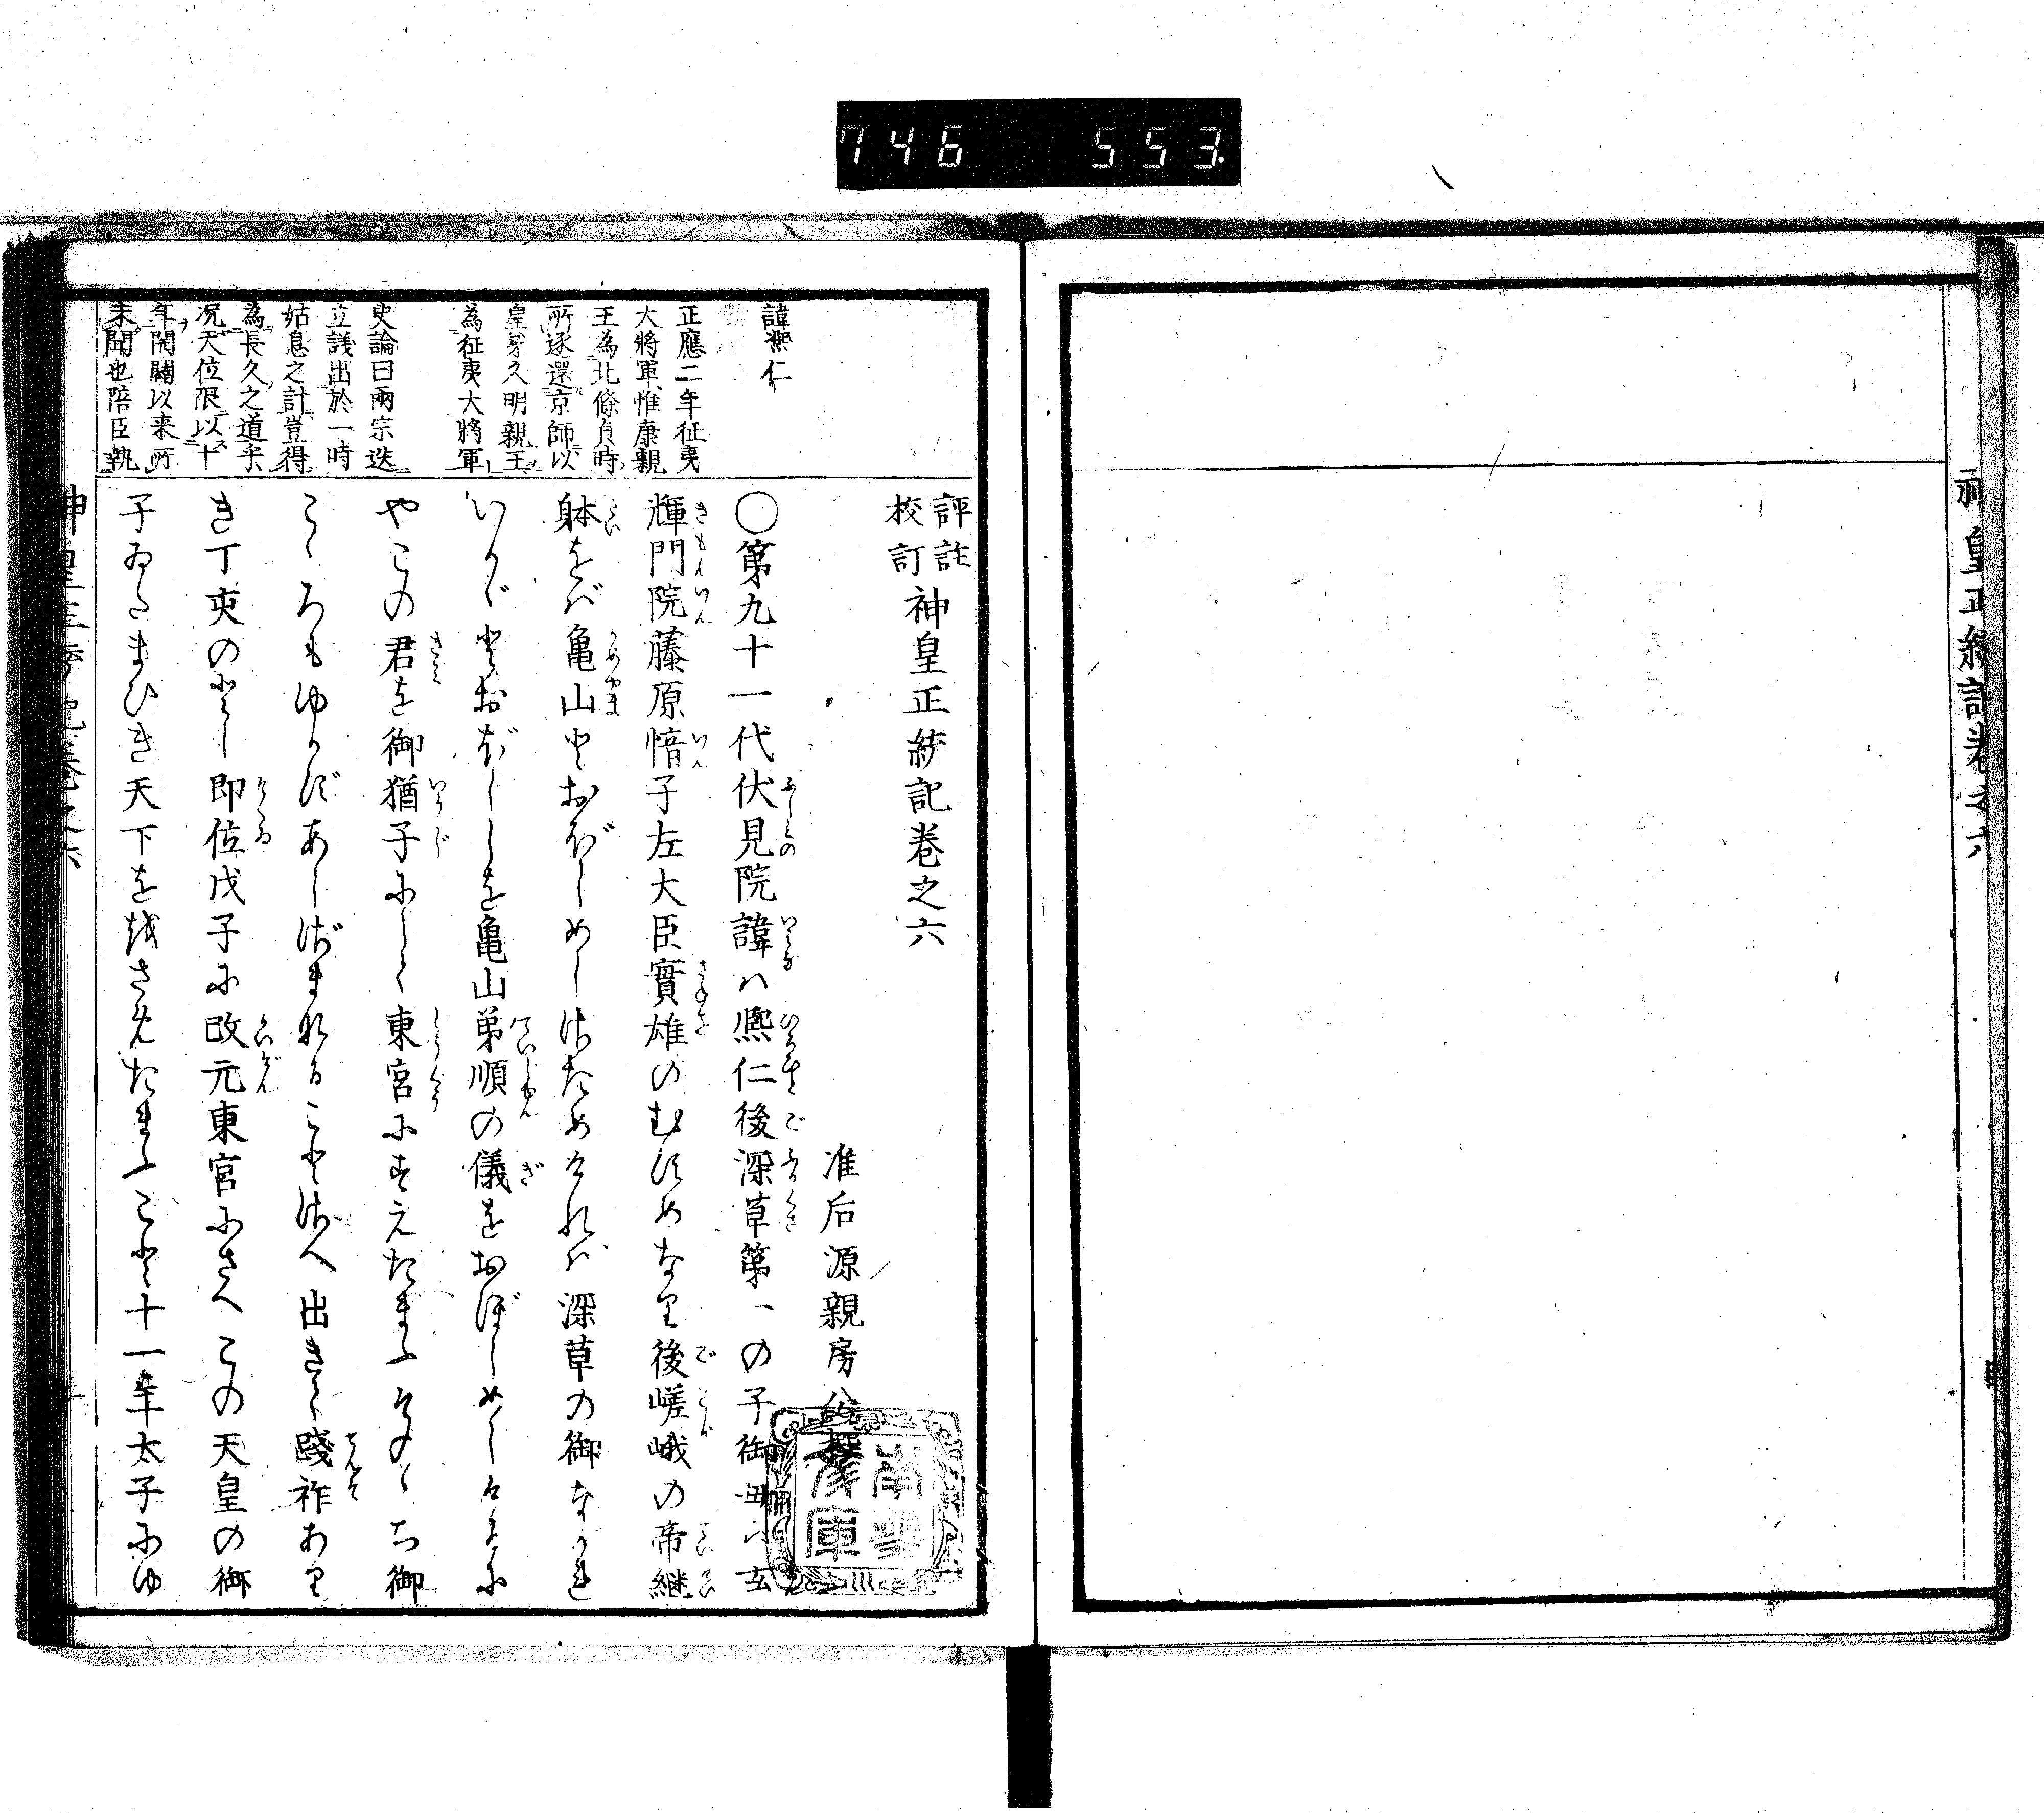 746 553.
評註
校訂
神皇正統記卷之六
准后源親房公撰
〇第九十一代伏見院諱ハ熈仁後深草第一の子御母ハ玄
輝門院藤原愔子左大臣實雄のむすめなり後嵯峨の帝継
躰をバ亀山とおぼしめしさためけれバ深草の御ながれ
いかゞとおぼしゝを亀山弟順の儀をおぼしめしけるに
やこの君を御猶子にして東宮にすえたまふそのゝち御
こゝろもゆかずあしざまなることさへ出きて踐祚あり
き丁亥のとし即位戊子に改元東宮にさへこの天皇の御
子ゐたまひき天下を越さめたまふこと十一年太子にゆ
諱熈仁
正應二年征夷
大將軍惟康親
王為北條貞時
所逐還京師以
皇芽久明親王
為征夷大將軍
史論曰兩宗迭
立議出於一時
姑息之計豈得
為長久之道乎
况天位限以十
年開闢以来所
未聞也陪臣執
神皇正統記卷之六